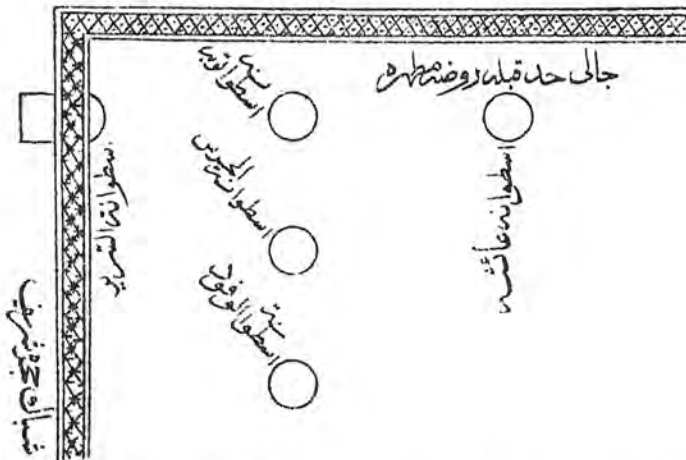 جالی حد قبلہ روضہ مطہرہ
اسطوانہ عائشہ
اسطوانة توبہ
اسطوانة الحرس
اسطوانة الوفود
اسطوانة السریر
شباک حجرہ شریف